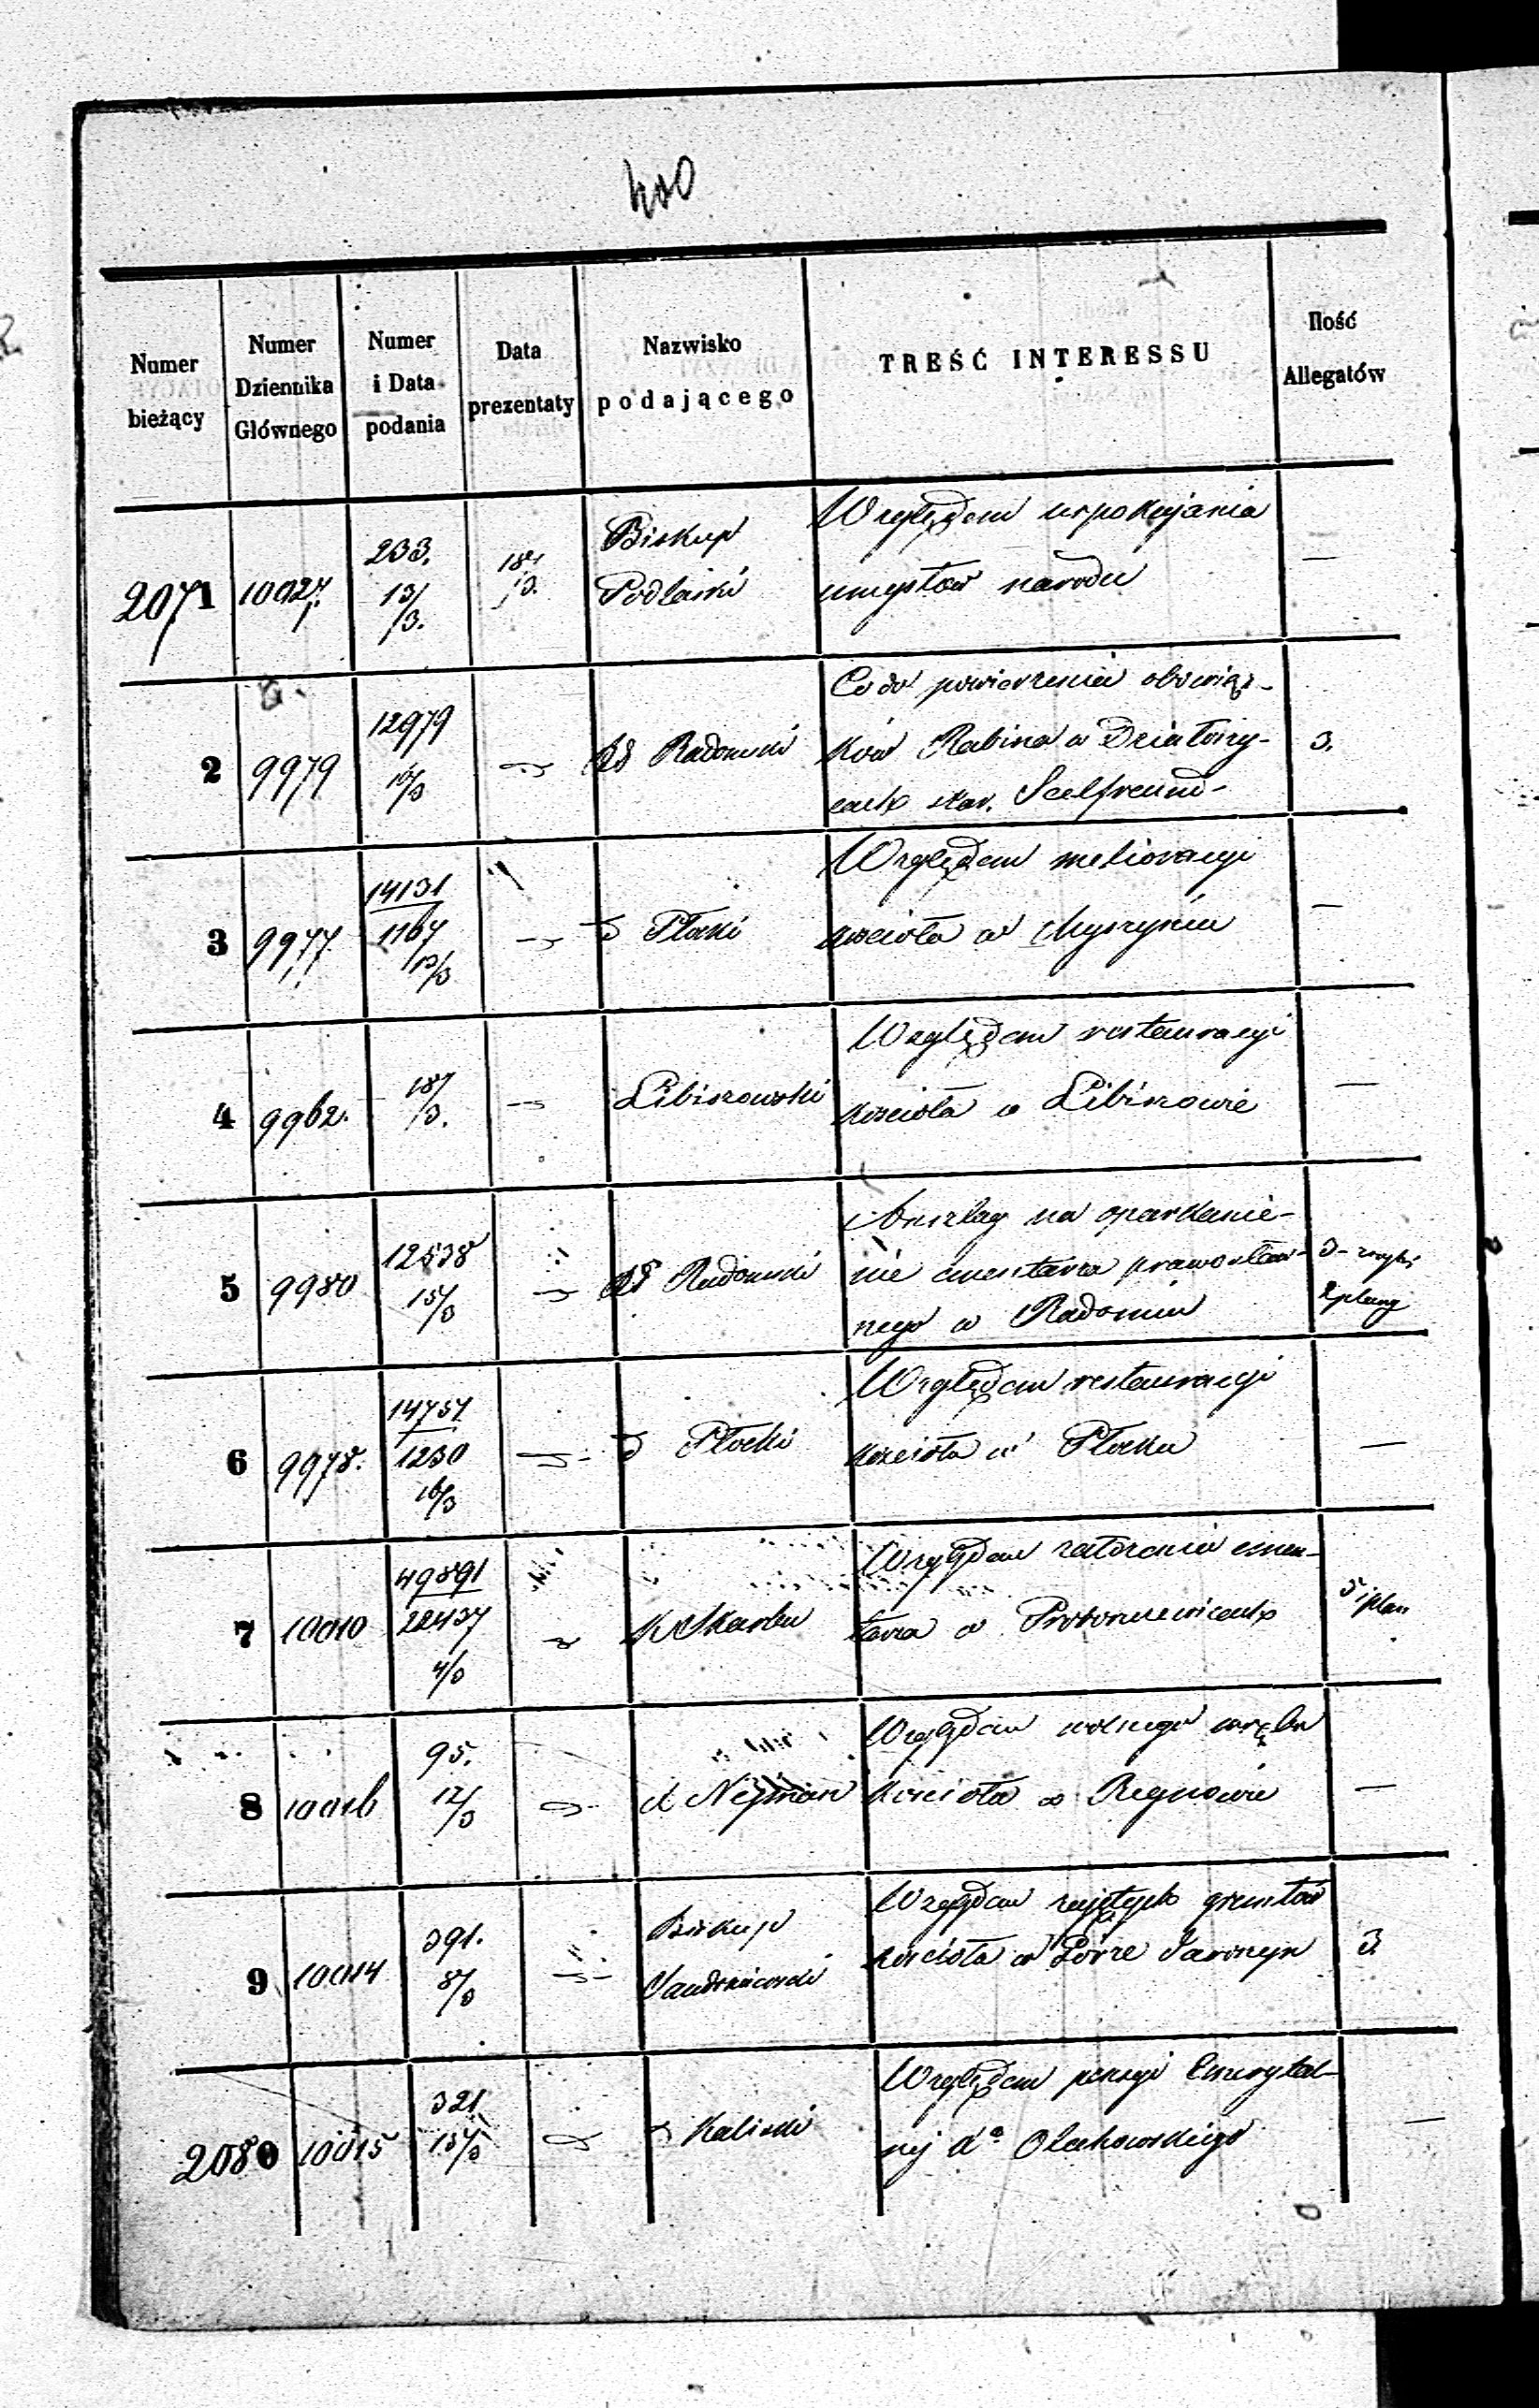 Numer bieżący
Numer Dziennika Głównego
Numer i Data podania
Data prezentaty
Nazwisko podającego
TREŚĆ INTERESSU
Ilość Allegatów
2071
10027.
233.
13/3.
18/3.
Biskup
Podlaski
Względem uspokojania
umysłów narodu
—
2
9979
12979
16/3
Rd Radomski
Co do powierzenia obowiąz-
ków Rabina w Działoszy-
cach star. Seelfreund-
3.
3
9977
14131
1167
13/3
d Płocki
Względem melioracyi
kościoła w Myszyńcu
—
4
9962.
18/3.
Libiszowski
Względem restauracyi
kościoła w Libiszowie
—
5
9980
12538
15/3
Rd Radomski
Anszlag na oparkanie-
nie cmentarza prawosław-
nego w Radomiu
3-
2 plany
6
9978.
14757
1230
16/3
d Płocki
Względem restauracyi
kościoła w Płocku
—
7
10010
49891
22437
4/3
K Skarbu
Względem założenia cmen-
tarza w
5 i plan
8
10016
95.
12/3
X Nejman
Względem wolnego wrębu
kościoła w Regnowie
—
9
10014
391.
8/3
Biskup
Sandomierski
Względem zajętych gruntów
kościoła w Górze
3.
2080
10015
321
15/3
d Kaliski
Względem pensyi Emerytal-
nej Xa Olakowskiego
—